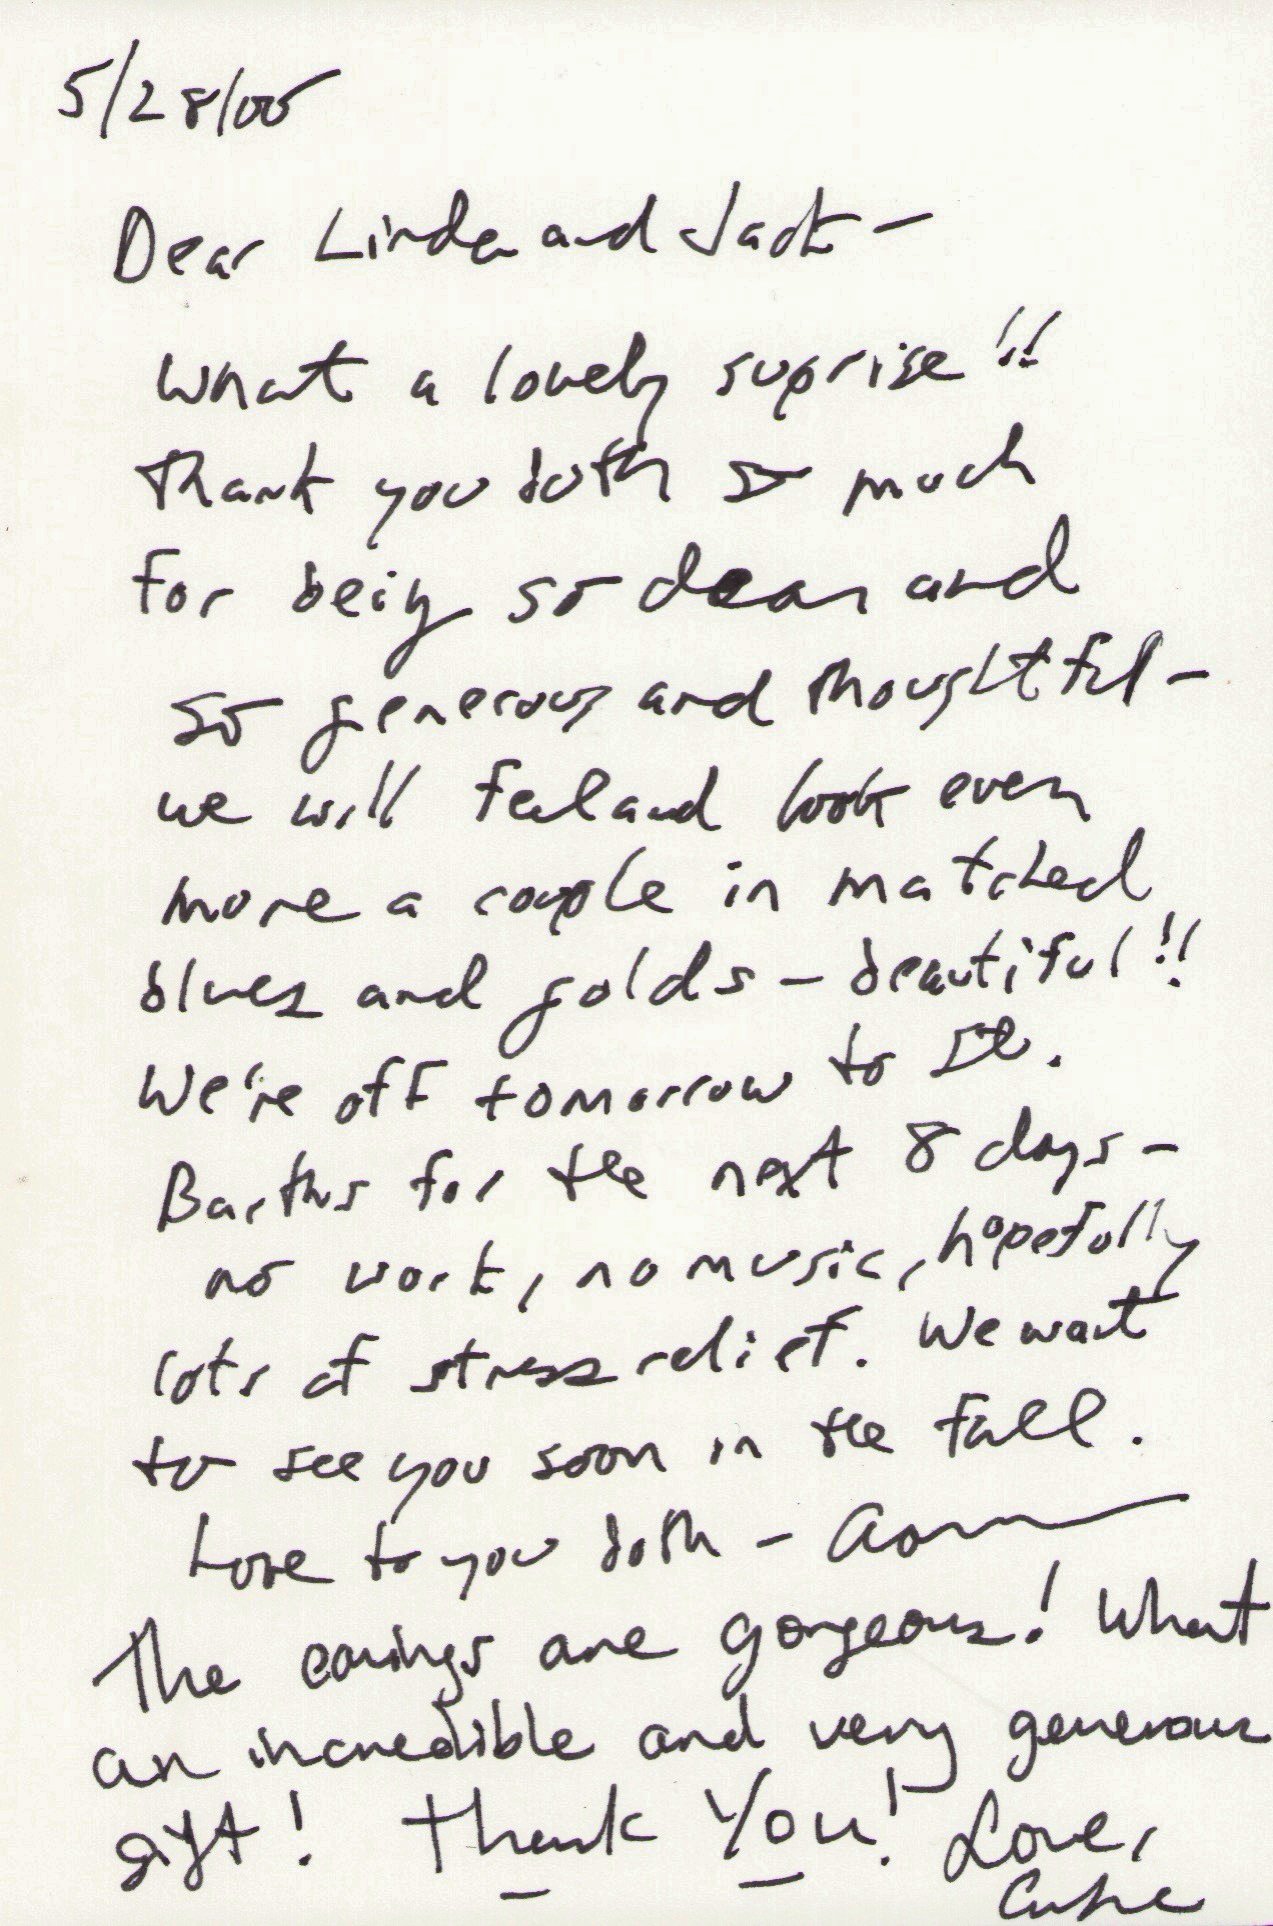 5/28/00
Dear Linda and Jack –
What a lovely suprise!!
Thank you both so much
for being so dear and
so generous and thoughtful –
we will feel and look even
more a couple in matched
blues and golds – beautiful!!
We're off tomorrow to St.
Barths for the next 8 days –
no work, no music, hopefully
lots of stress relief. We want
to see you soon in the fall.
Love to you both – Aaron
The earings are gorgeous! What
an incredible and very generous
gift! Thank You! Love,